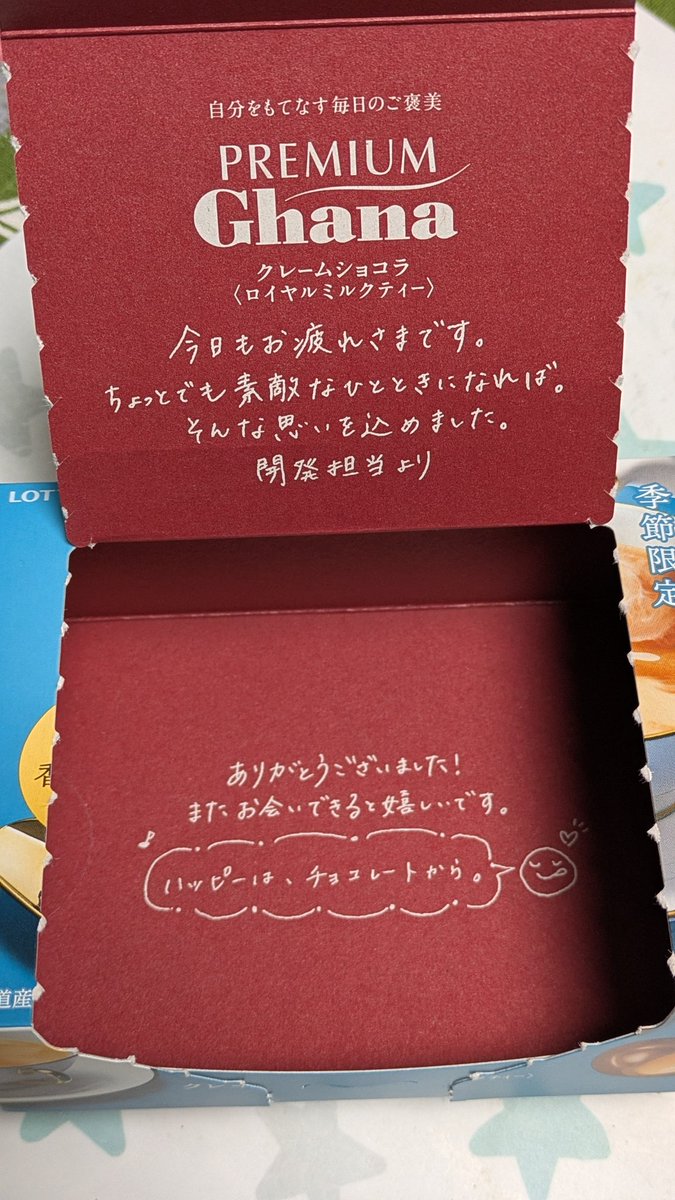 自分をもてなす毎日のご褒美
PREMIUM
Ghana
クレームショコラ
〈ロイヤルミルクティー〉
今日もお疲れさまです。
ちょっとでも素敵なひとときになれば。
そんな思いを込めました。
開発担当より
LOT
季節限定
香
ありがとうございました!
またお会いできると嬉しいです。
ハッピーは、チョコレートから。
道産